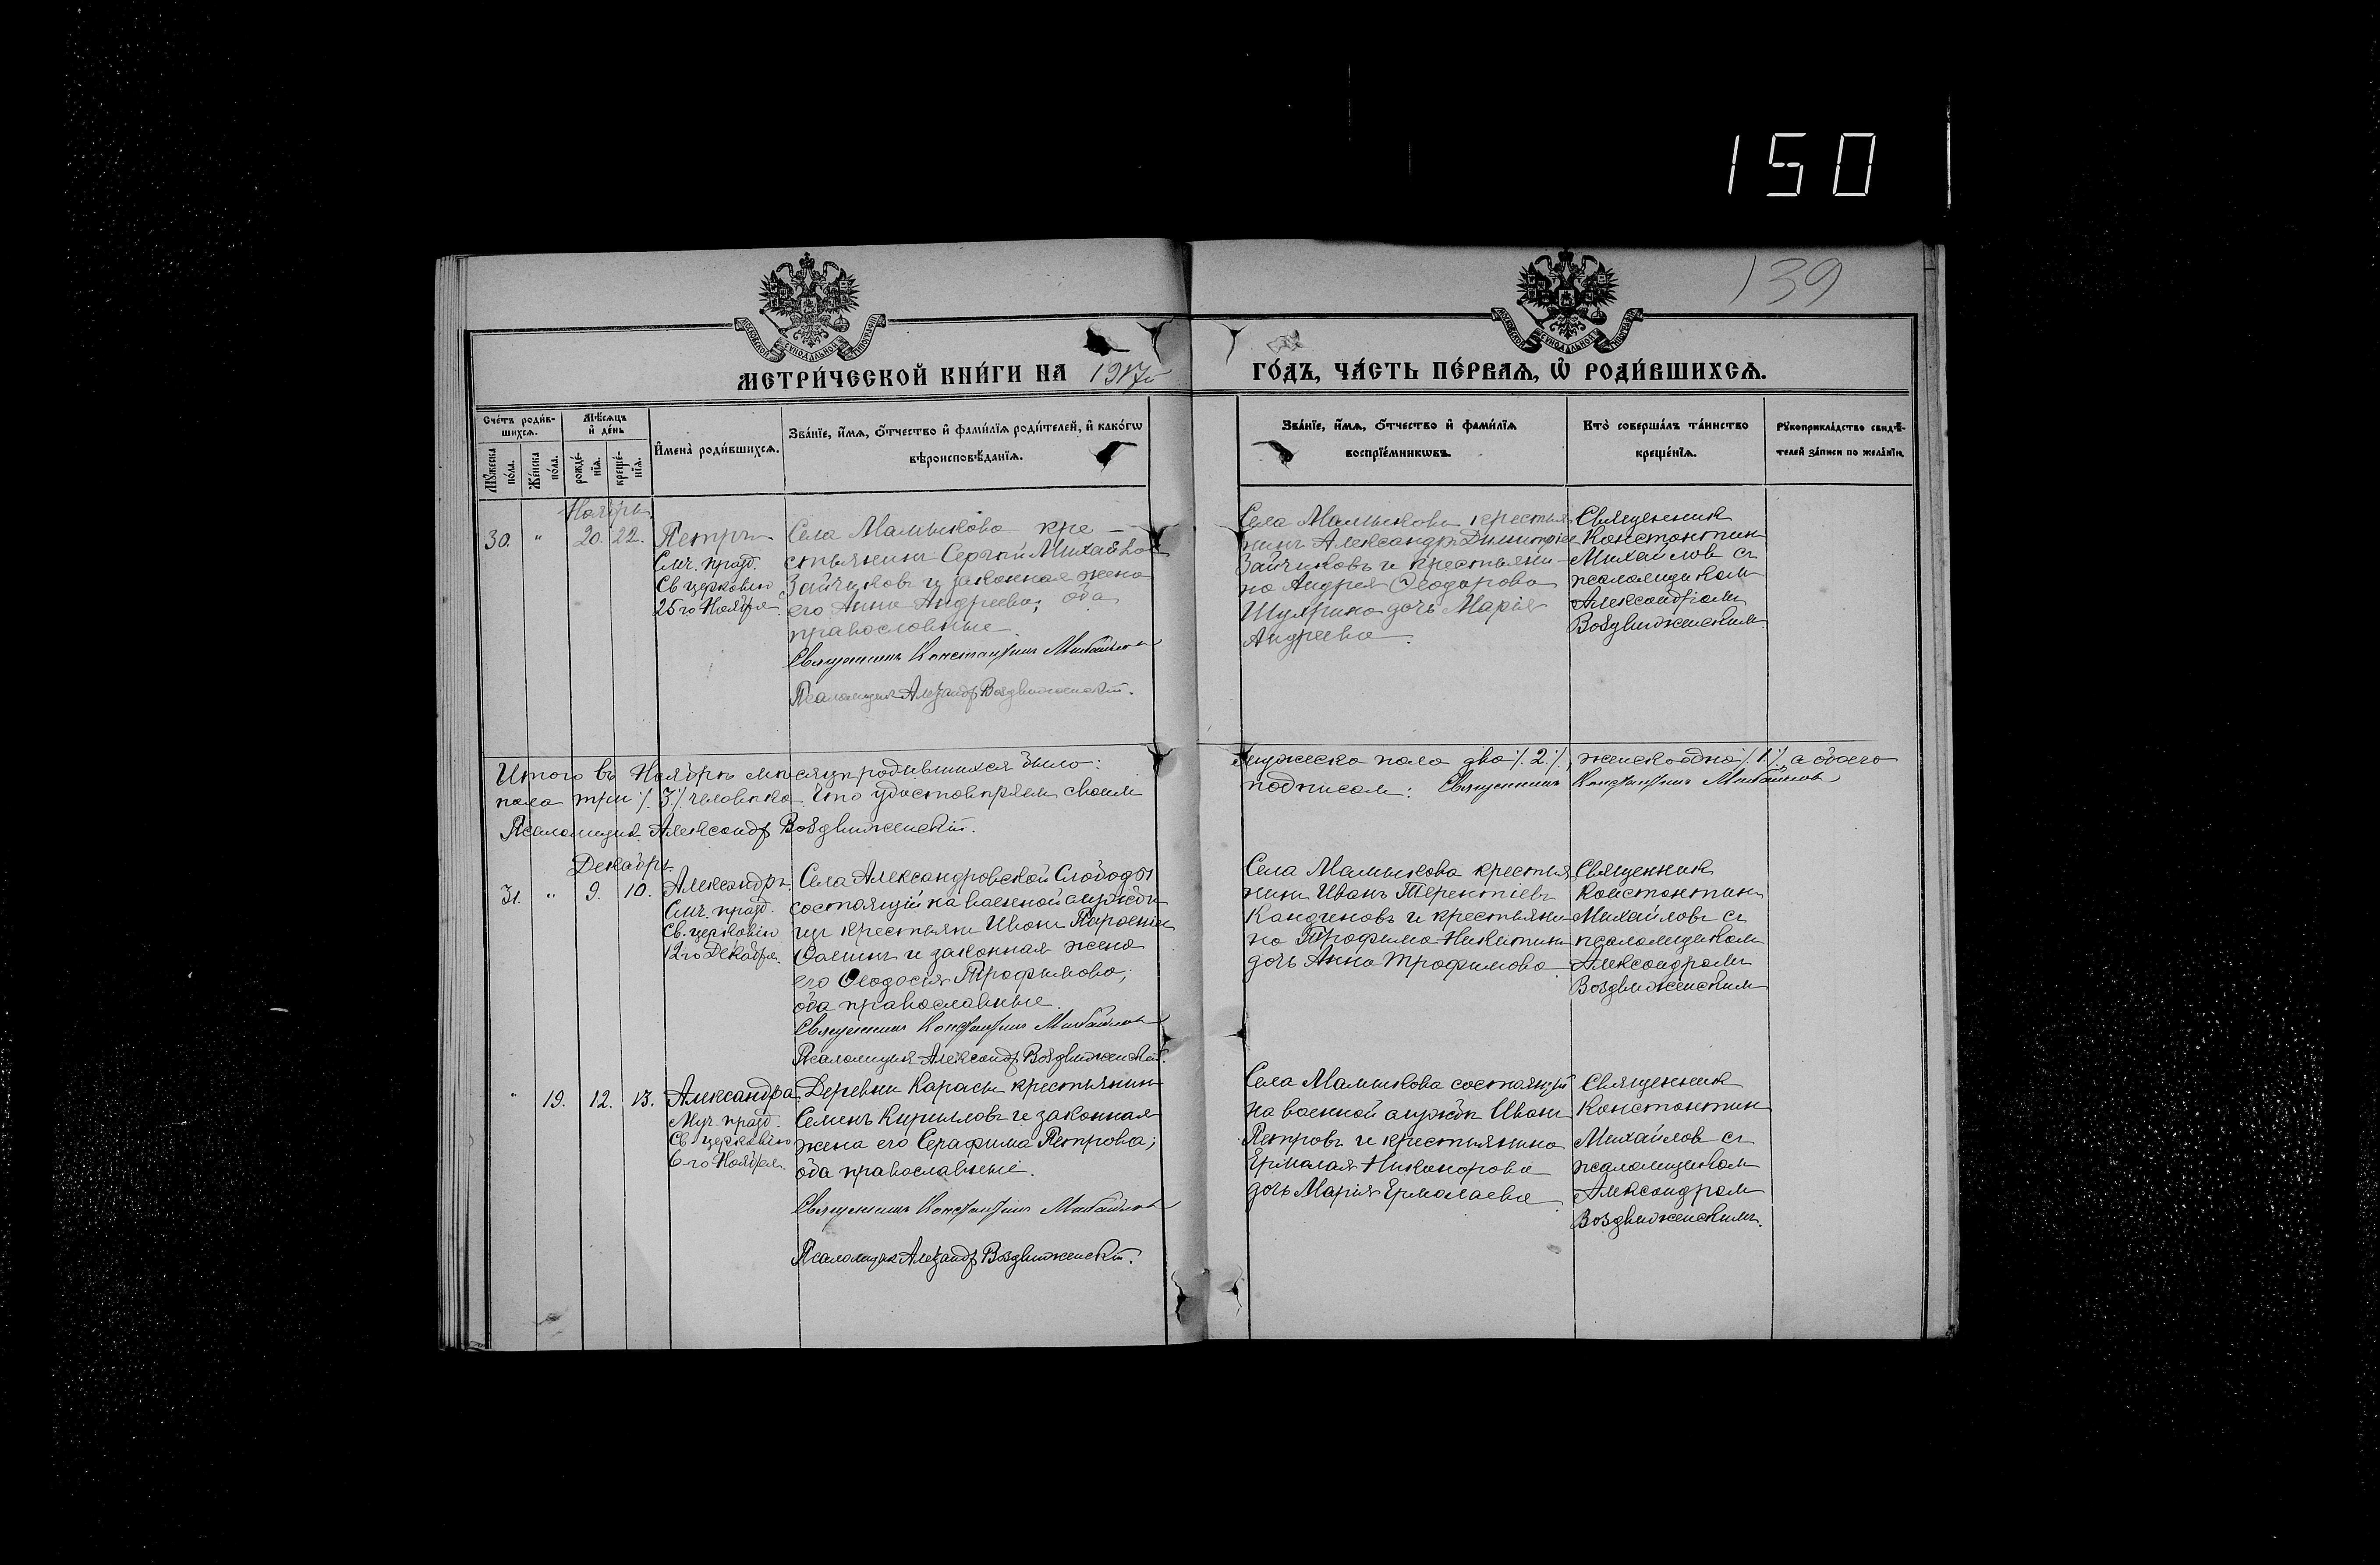 150
139
МОСКОВСКОЙ СѴНОДАЛЬНОЙ ТИПОГРАФІИ
МОСКОВСКОЙ СѴНОДАЛЬНОЙ ТИПОГРАФІИ
МЕТРИ́ЧЕСКОЙ КНИ́ГИ НА 1917й
ГО́ДЪ, ЧА́СТЬ ПЕ́РВАѦ, Ѡ҆ РОДИ́ВШИХСѦ.
Сче́тъ роди́в-
шихсѧ.
Мѣ́сѧцъ
и҆ де́нь
Мꙋ́жеска
по́ла.
Же́нска
по́ла.
рожде́-
нїѧ.
креще́-
нїѧ.
И҆мена̀ роди́вшихсѧ.
Зва́нїе, и҆́мѧ, ѻ҆́тчество и҆ фами́лїѧ роди́телей, и҆ како́гѡ
вѣроисповѣ́данїѧ.
Зва́нїе, и҆́мѧ, ѻ҆́тчество и҆ фами́лїѧ
воспрїе́мникѡвъ.
Кто̀ соверша́лъ та́инство
креще́нїѧ.
Рꙋкоприкла́дство свидѣ́-
телей за́писи по жела́нїю.
Ноябрь.
30. " 20. 22.
Петръ
Смч. празд.
Св. церковію
25го Ноября.
Села Мамыкова кре-
стьянинъ Сергѣй Михайловъ
Зайчиковъ и законная жена
его Анна Андреева; оба
православные.
Священникъ Константинъ Михайловъ
Псаломщикъ Александръ Воздвиженскій.
Села Мамыкова крестья-
нинъ Александръ Димитріев
Зайчиковъ и крестьяни-
на Андрея Ѳеодорова
дочь Марія
Андреева.
Священник
Константин
Михайлов съ
псаломщиком
Александром
Воздвиженским.
Итого въ Ноябрѣ мѣсяцѣ родившихся было:
мужеска пола два /.2./, женска одна /.1./, а обоего
пола три /.3./ человѣка. Что удостовѣряем своим
подписом: Священникъ Константинъ Михайловъ
Псаломщик Александр Воздвиженскій.
Декабрь.
31. " 9. 10.
Александръ.
Смч. празд.
Св. церковію
12го Декабря.
Села Александровской Слободы
состоящій на военной службѣ
изъ крестьян Иван
и законная жена
его Ѳеодосія Трофимова;
оба православные.
Священникъ Константинъ Михайловъ
Псаломщик Александр Воздвиженскій.
Села Мамыкова крестья-
нин Иванъ Терентіевъ
и крестьяни-
на Трофима Никитина
дочь Анна Трофимова.
Священник
Константин
Михайловъ съ
псаломщиком
Александромъ
Воздвиженским
" 19. 12. 13.
Александра
Муч. празд.
Св. церковію
6-го Ноября.
Деревни Карасы крестьянин
Семенъ Кирилловъ и законная
жена его Серафима Петрова;
оба православные.
Священникъ Константинъ Михайловъ
Псаломщик Александр Воздвиженскій.
Села Мамыкова состоящій
на военной службѣ Иван
Петровъ и крестьянина
Ермолая Никанорова
дочь Марія Ермолаева.
Священник
Константин
Михайлов съ
псаломщиком
Александром
Воздвиженскимъ.